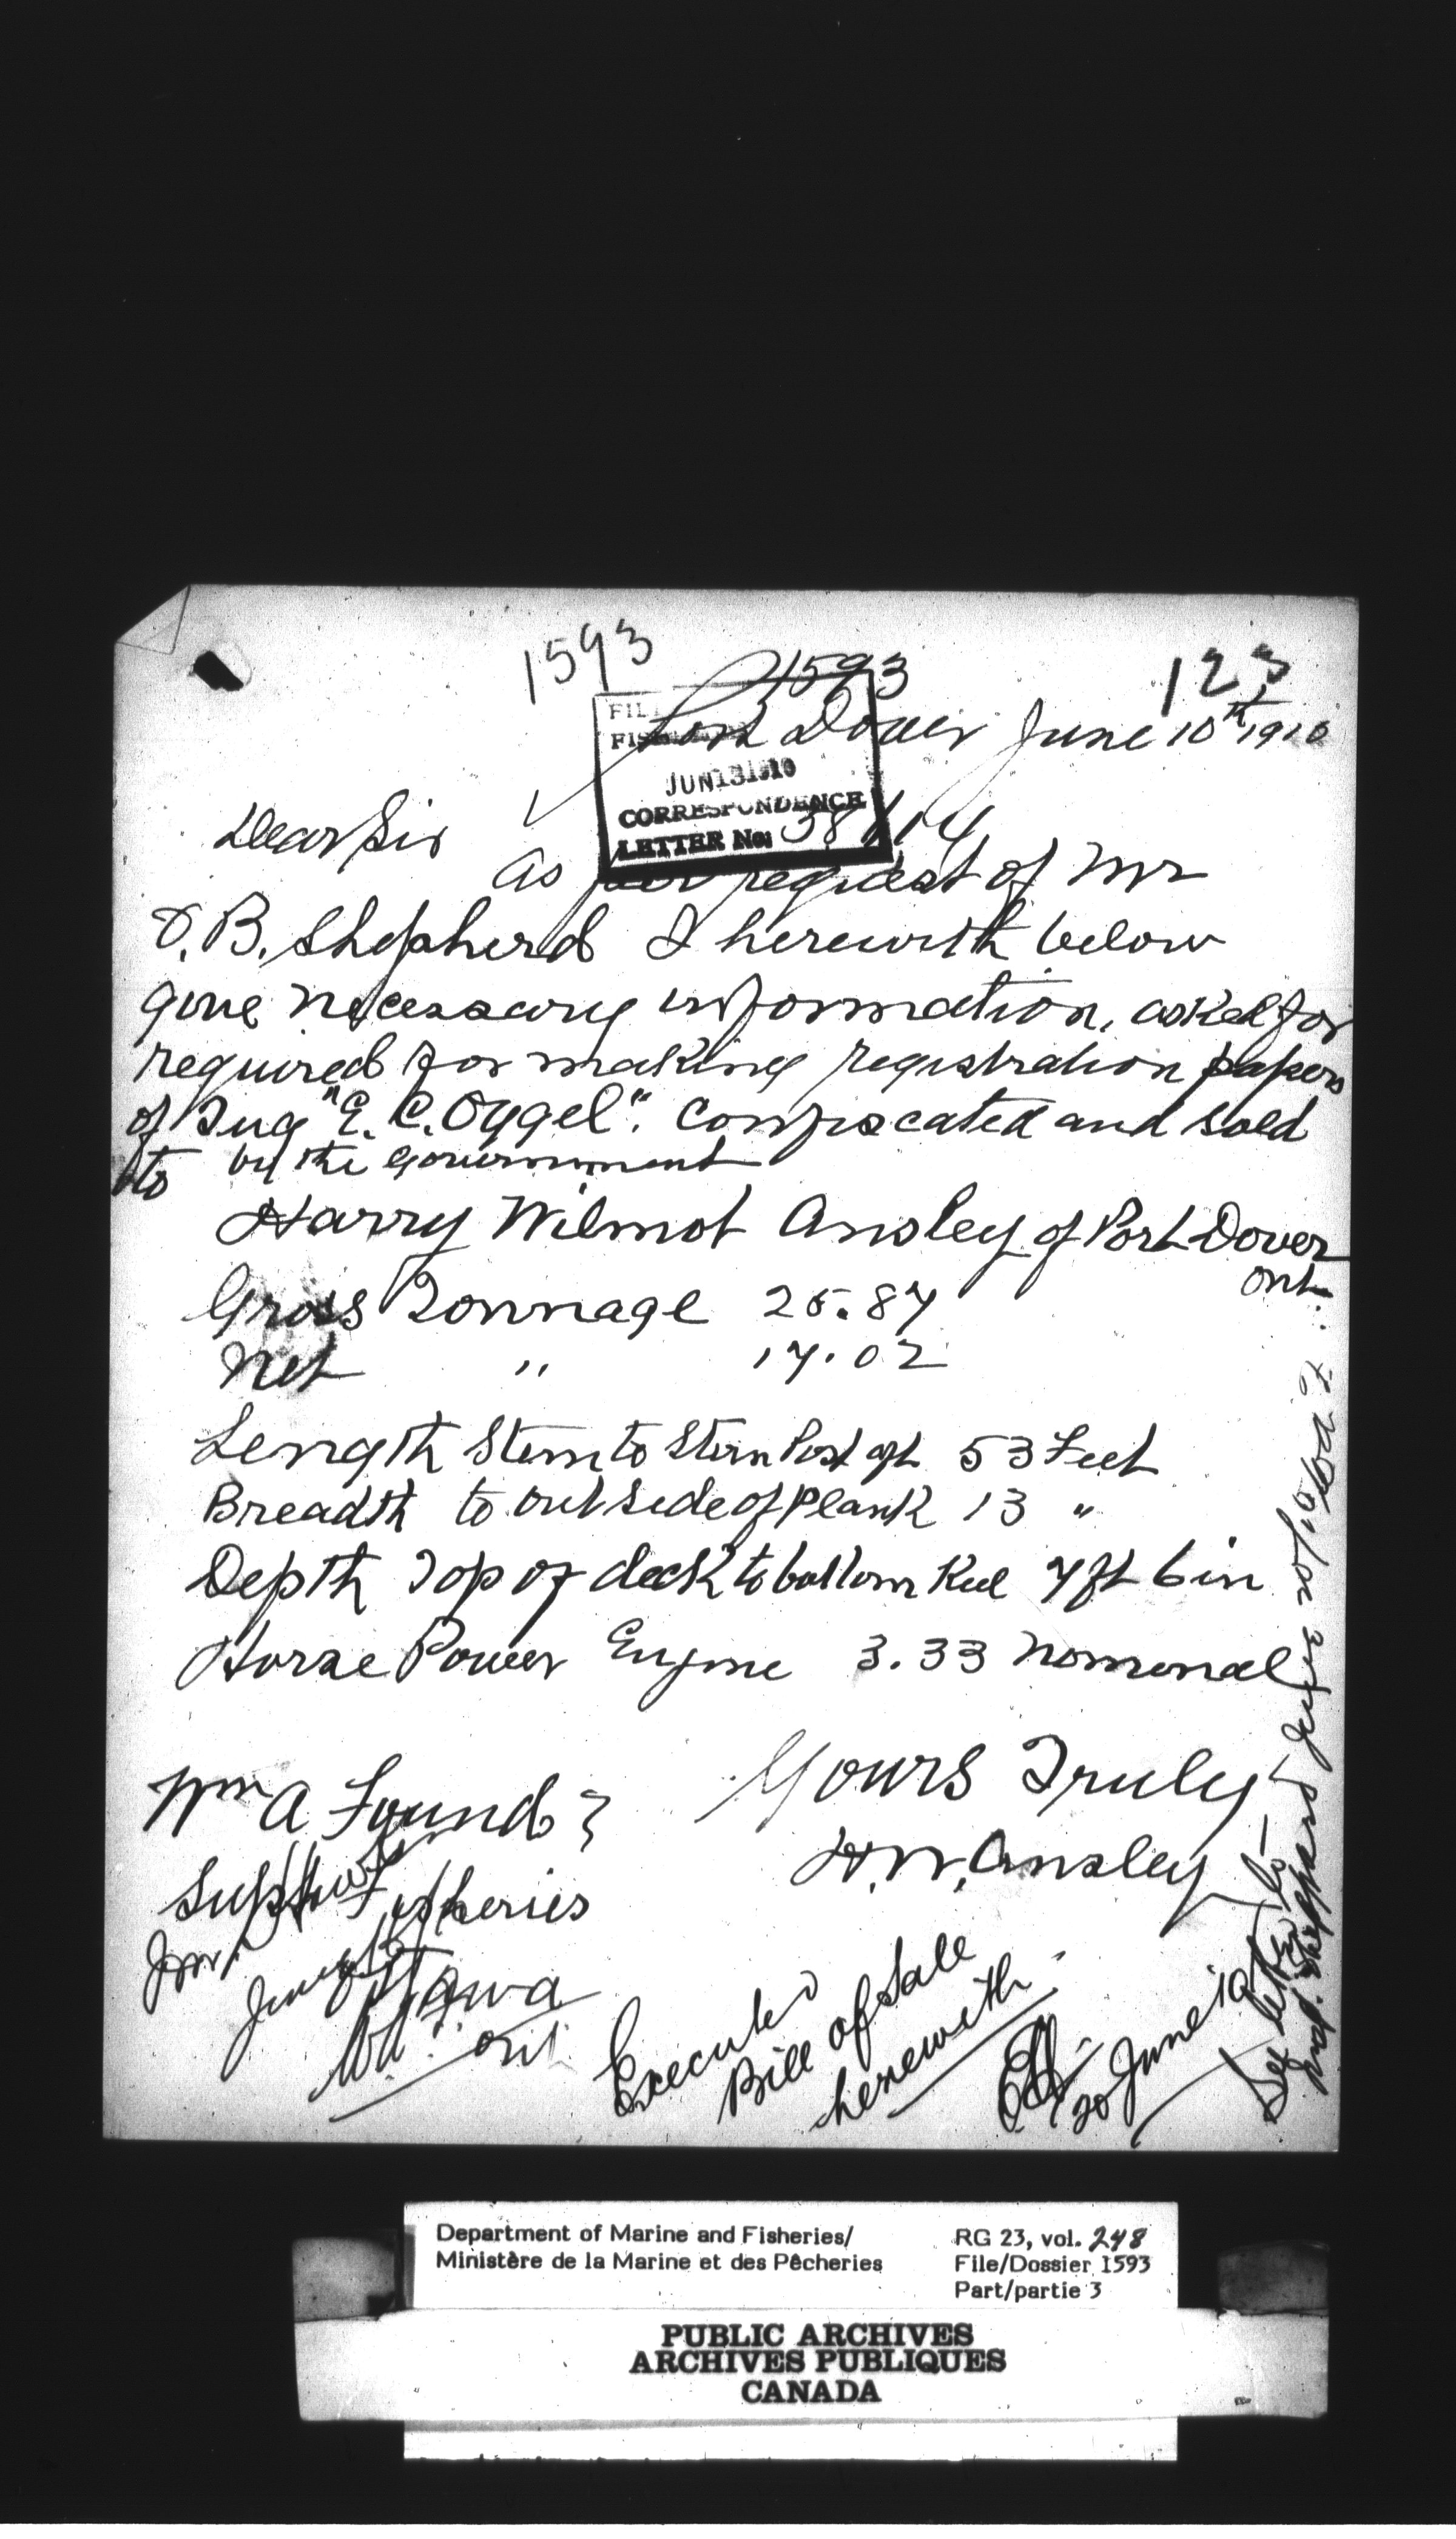 1593
1593
123
Port Dover June 10th 1910
JUN 13 1910
CORRESPONDENCE
LETTER No:
Dear Sir
As per request of Mr
O. B. Shepherd I herewith below
give necessary information, asked for
required for making registration papers
of Tug "E. C. Oggel". Confiscated and sold
to by the Government
Harry Wilmot Ansley of Port Dover
Ont.
Gross Tonnage 25.87
Net " 17.02
Length Stem to Stern Post aft 53 Feet
Breadth to outside of Plank 13 "
Depth Top of deck to bottom Keel 7 ft 6 in
Horse Power Engine 3.33 Nomenal
Yours Truly
H. W. Ansley
Wm A Found
Supt of Fisheries
Ottawa
Ont
Executed
Bill of Sale
herewith
20 June 10
See letter to
Department of Marine and Fisheries/
Ministère de la Marine et des Pêcheries
RG 23, vol. 248
File/Dossier 1593
Part/partie 3
PUBLIC ARCHIVES
ARCHIVES PUBLIQUES
CANADA